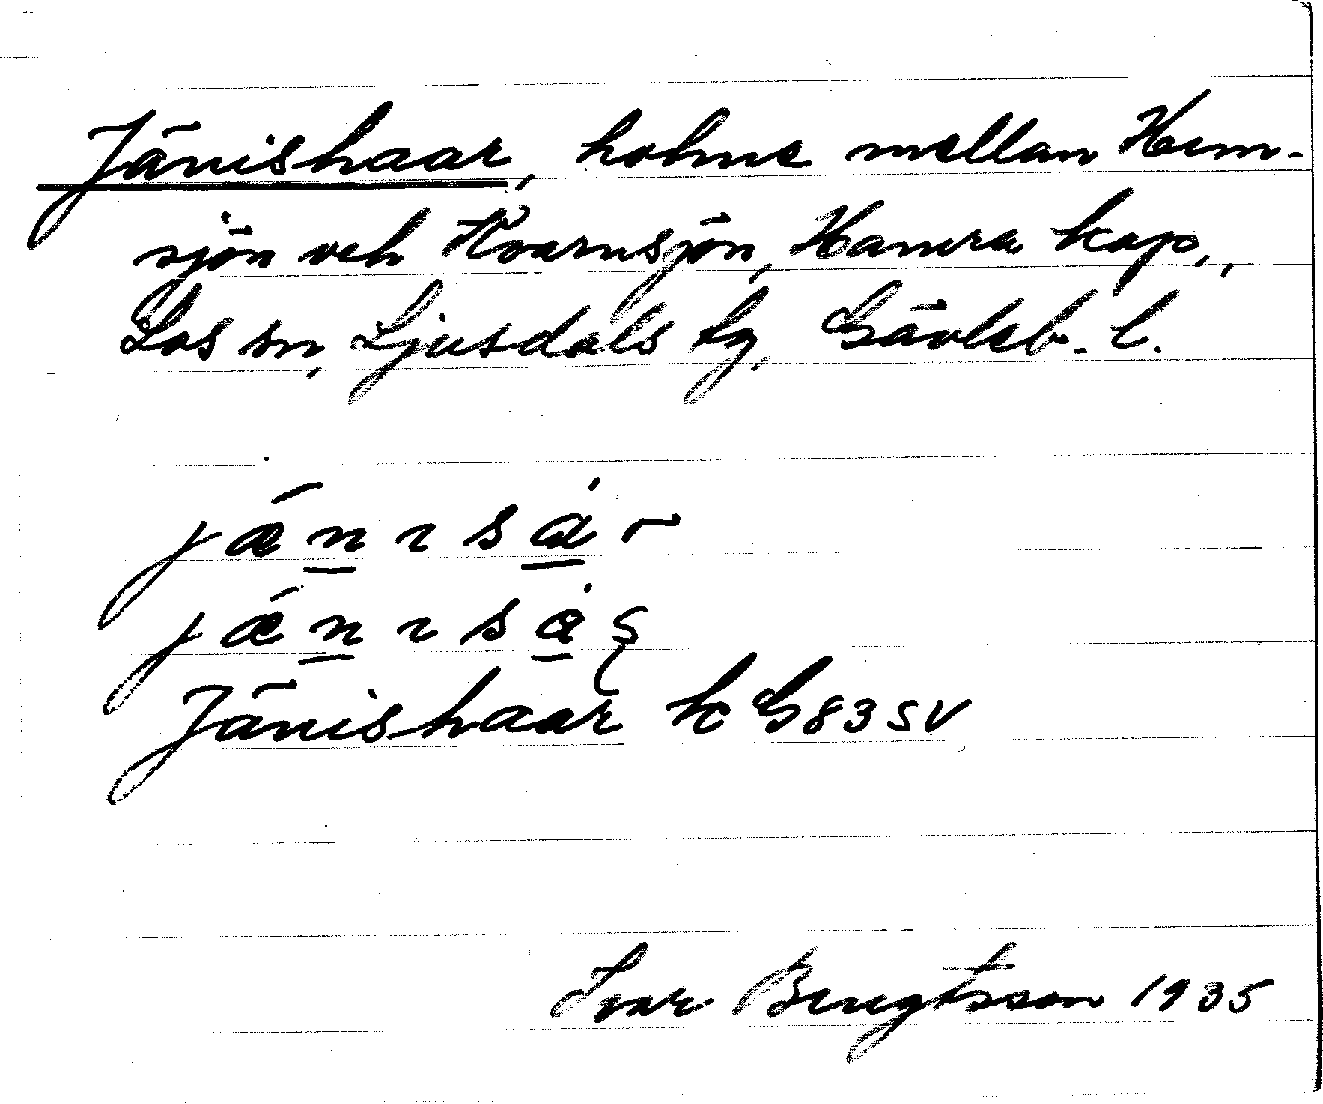 Jänishaar, holme mellan Hem-
sjön och Kvarnsjön, Hamra kap.,
Los sn, Ljusdals tg, Gävleb. l.
jǽnısȧr
jǽnısȧ
Jänishaar k G83SV
Ivar Bengtsson 1935